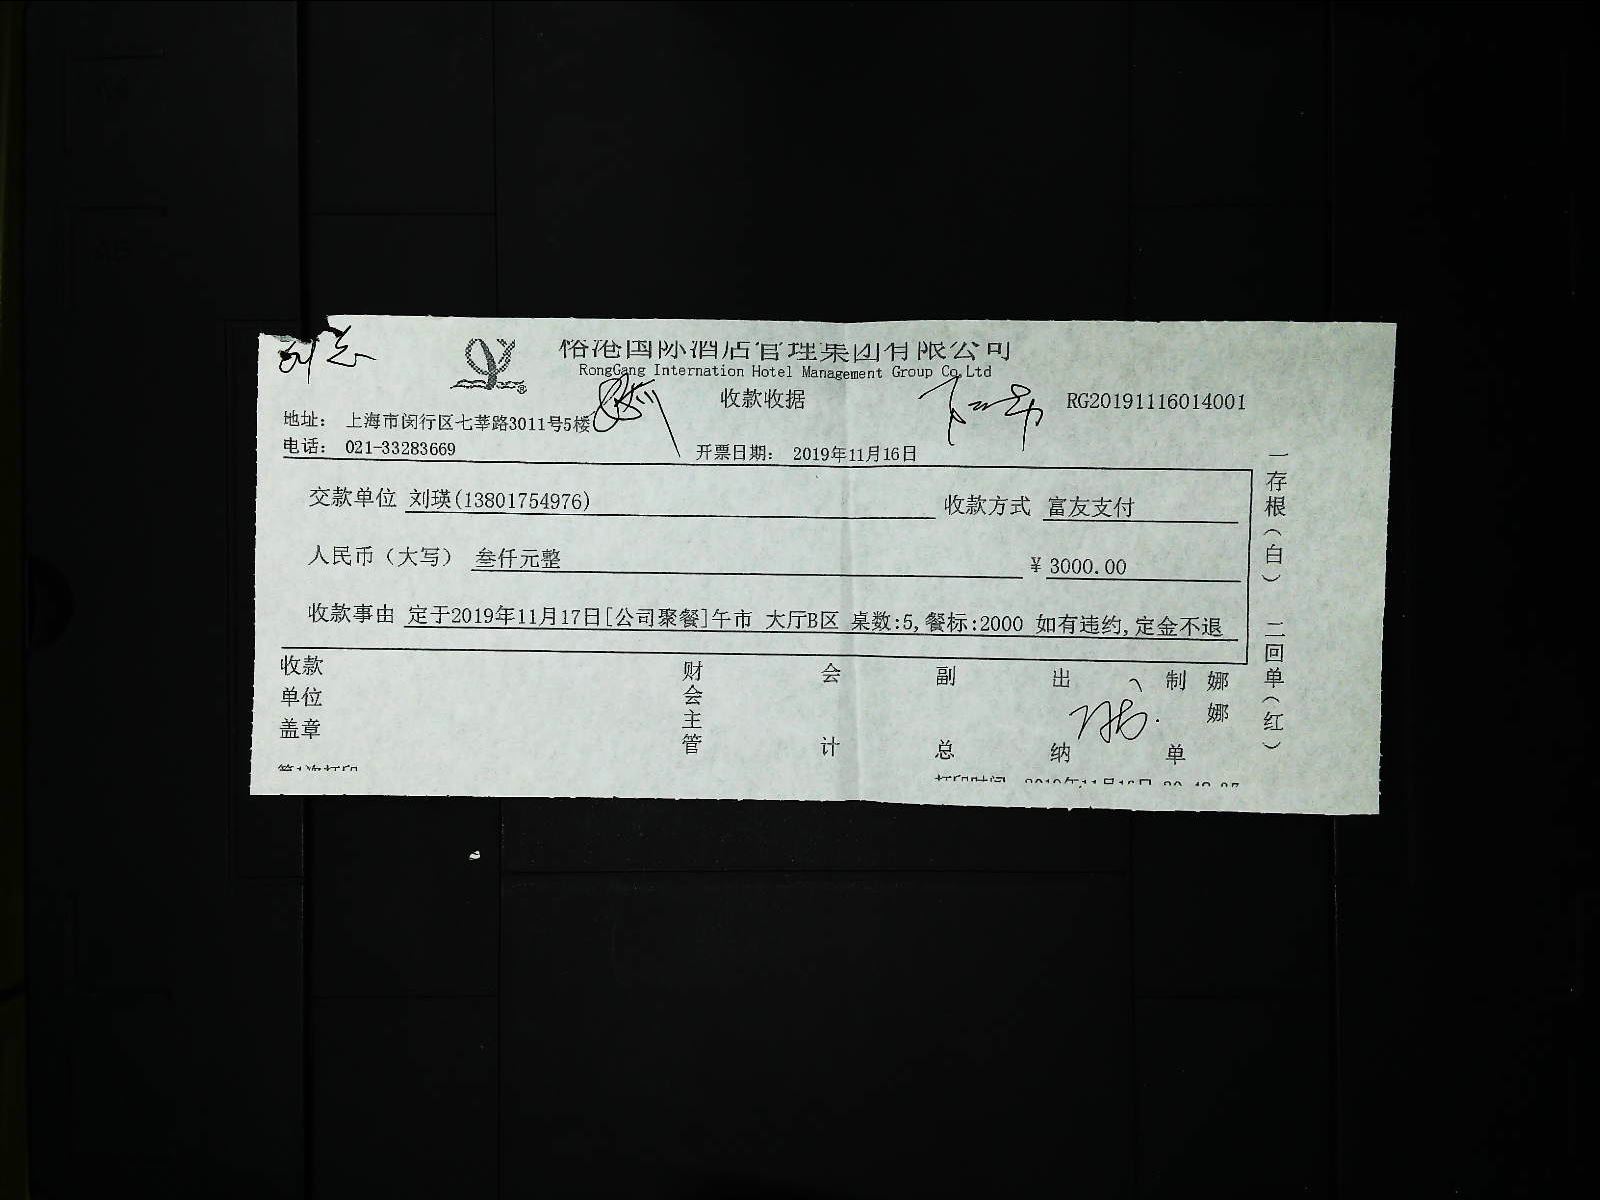 裕港国际酒店管理集团有限公司
RongGang Internation Hotel Management Group Co,Ltd
收款收据
RG20191116014001
地址： 上海市闵行区七莘路3011号5楼
电话： 021-33283669
开票日期： 2019年11月16日
交款单位 刘瑛(13801754976) 收款方式 富友支付
人民币（大写） 叁仟元整 ¥ 3000.00
收款事由 定于2019年11月17日[公司聚餐]午市 大厅B区 桌数:5,餐标:2000 如有违约,定金不退
收款单位盖章 财会主管 会计 副总 出纳 制单 娜娜
一存根（白） 二回单（红）
第1次打印